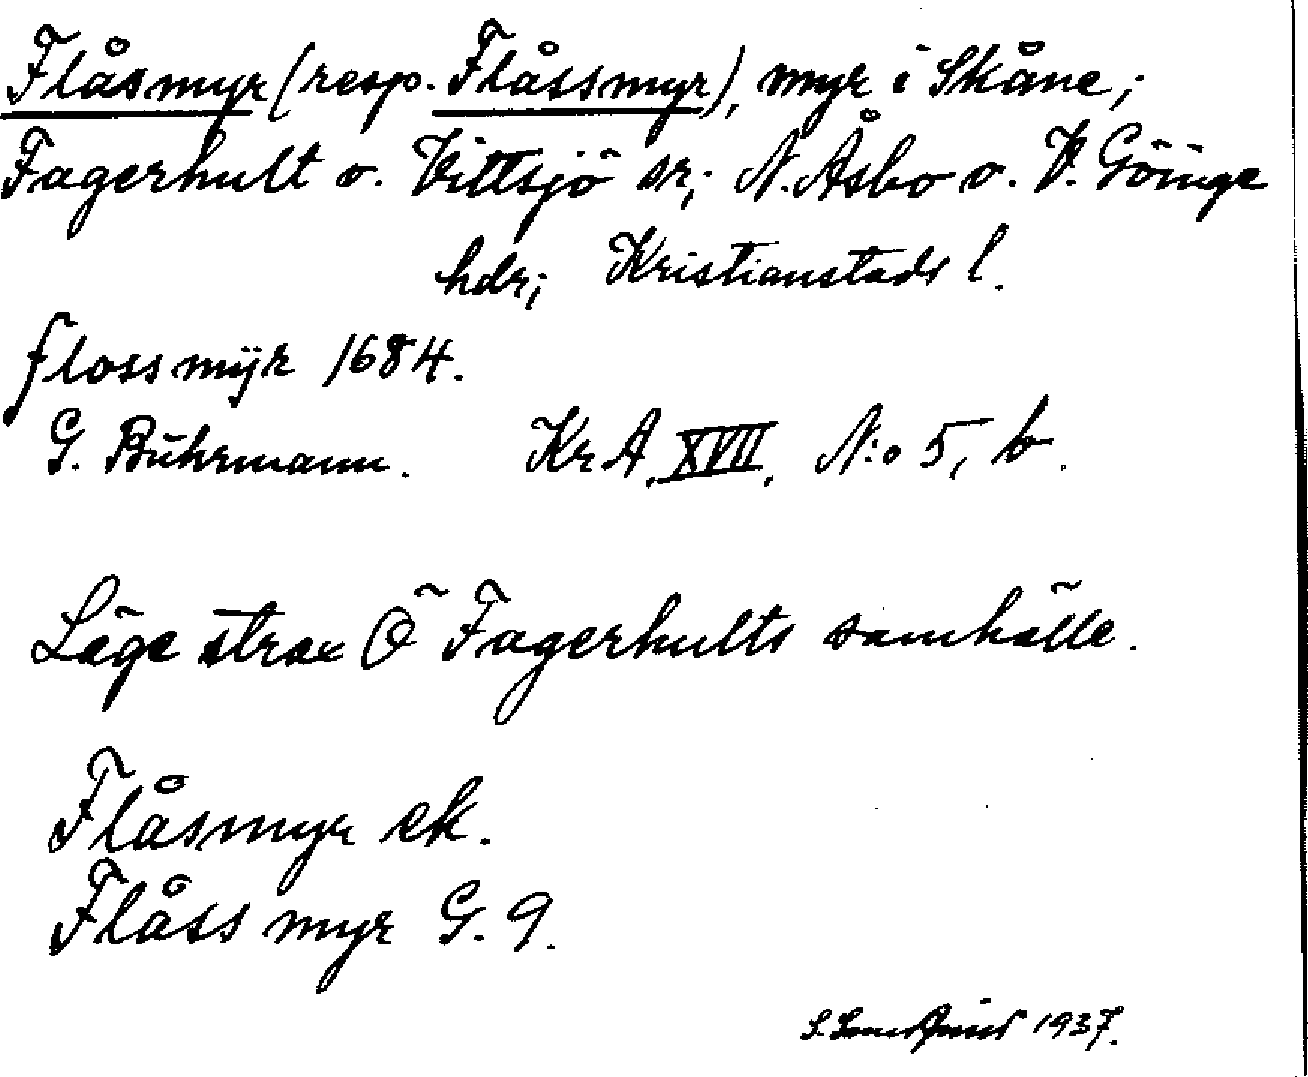 Flåsmyr (resp. Flåssmyr), myr i Skåne;
Fagerhult o. Vittsjö sr; N. Åsbo o. V. Göinge
hdr; Kristianstads l.
flossmÿr 1684.
G. Buhrmann. KrA, XVII, N:o 5, b.
Läge strax Ö Fagerhults samhälle.
Flåsmyr ek.
Flåss myr G. 9.
S. 1937.